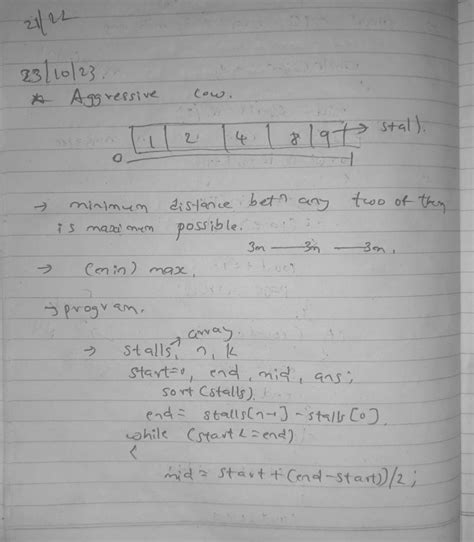 21/22
23/10/23.
* Aggressive cow.
1 2 4 8 9 → stall.
0
→ minimum distance betn any two of them
is maximum possible.
3m — 3m — 3m.
→ (min) max.
→ program.
array.
→ stalls, n, k
start=0, end, mid, ans;
sort (stalls)
end = stalls[n-1] - stalls[0].
while (start<=end)
{
mid = start + (end-start)/2;